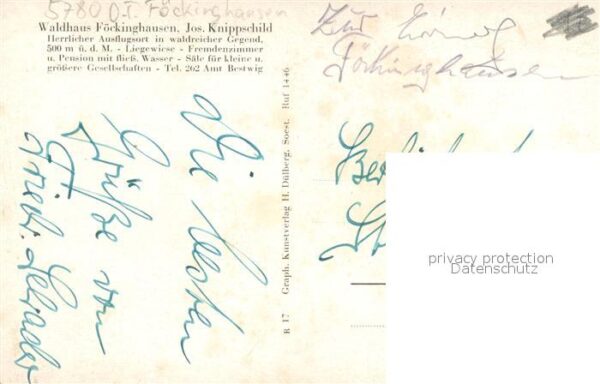 5780 O.T. Föckinghausen
Waldhaus Föckinghausen, Jos. Knippschild
Herrlicher Ausflugsort in waldreicher Gegend,
500 m ü. d. M. - Liegewiese - Fremdenzimmer
u. Pension mit fließ. Wasser - Säle für kleine u.
größere Gesellschaften - Tel. 262 Amt Bestwig
Die besten
Grüße von
Friedr.
R 17 Graph. Kunstverlag H. Dülberg, Soest. Ruf 1446
Zur
Föckinghausen
privacy protection
Datenschutz